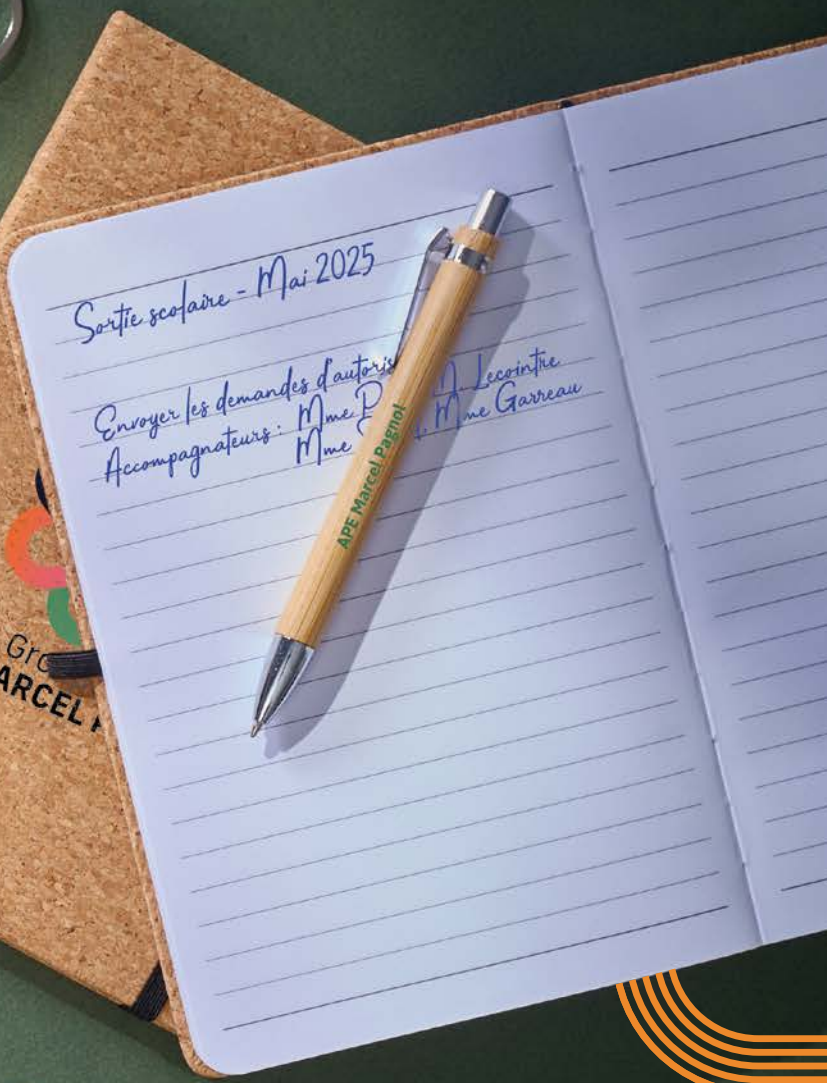 Sortie scolaire - Mai 2025
Envoyer les demandes d'autoris
Accompagnateurs : Mme M. Lecointre
Mme Mme Garreau
APE Marcel Pagnol
Gro
ARCEL